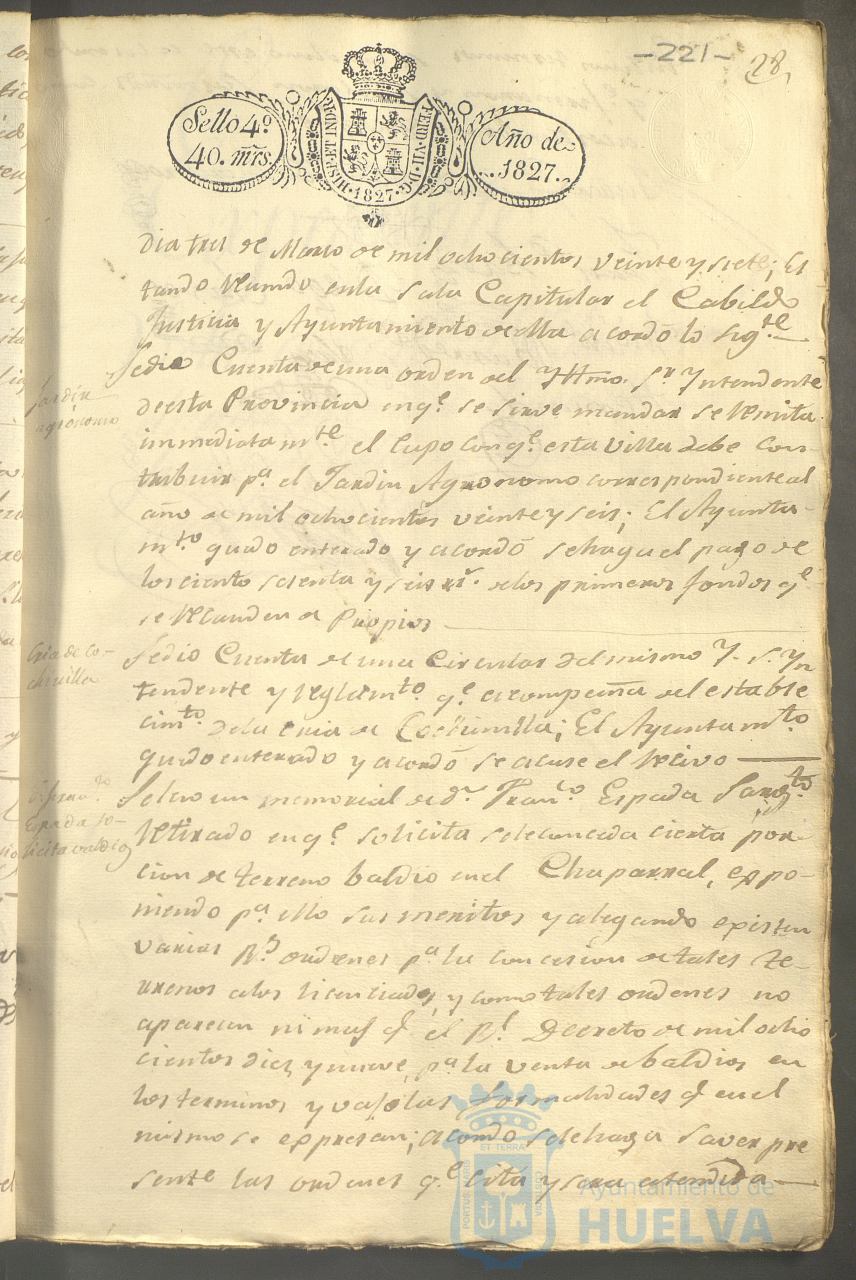 -221-
28,
Sello 4º
40. mrs.
HISP. ET IND. R.
FERD. VII. D. G.
· 1827 ·
Año de
1827.
Dia tres de Marzo de mil ochocientos veinte y siete; Es
tando reunido en la Sala Capitular el Cabildo
Justicia y Ayuntamiento de ella acordó lo sigte
Jardin
agronomo
Se dio Cuenta de una orden del Yltmo. Sr Yntendente
de esta Provincia en qe se sirve mandar se remita
inmediatamte el cupo con qe esta villa debe con-
tribuir pa el Jardin Agronomo correspondiente al
año de mil ochocientos veinte y seis; El Ayunta-
mto quedo enterado y acordó se haga el pago de
los ciento setenta y seis rs. de los primeros fondos qe
se recauden de Propios
Cria de Co-
chinilla
Se dio Cuenta de una Circular del mismo Y. S. Yn
tendente y reglamto qe acompaña del estable
cimto de la cria de Cochinilla; El Ayuntamto
quedo enterado y acordó se acuse el recivo
Espada so-
licita valdio
Se leyo un memorial de Dn Franco Espada Sargto
retirado en qe solicita se le conceda cierta por
cion de terreno baldio en el Chaparral, expo-
niendo pa ello sus meritos y alegando existen
varias Rs ordenes pa la concesion de tales te-
rrenos a los licenciados, y como tales ordenes no
aparecen ni mas q el Rl Decreto de mil ocho
cientos diez y nueve, pa la venta de baldios en
los terminos y vajo las formalidades q en el
mismo se expresan; acordo se le haga saver pre
sente las ordenes qe cita y sera atendida
PORTUS MARIS
ET TERRA
CUSTODIA
Ayuntamiento de
HUELVA